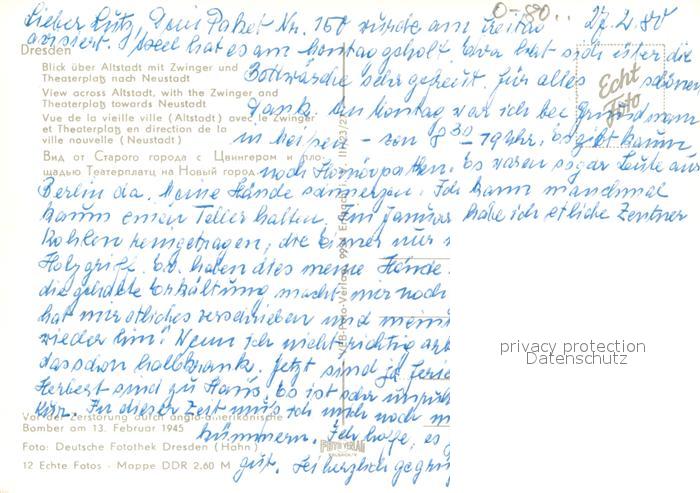 0-80..
Lieber Lutz, Dein Paket Nr. 150 wurde am Freitag 27.2.80
avisiert. Axel hat es am Montag geholt. Eva hat sich über die
Dresden
Bettwäsche sehr gefreut. Für alles schönen
Blick über Altstadt mit Zwinger und
Theaterplatz nach Neustadt
View across Altstadt, with the Zwinger and
Theaterplatz towards Neustadt
Vue de la vieille ville (Altstadt) avec le Zwinger
et Theaterplatz en direction de la
ville nouvelle (Neustadt)
Вид от Старого города с Цвингером и пло-
щадью Театерплатц на Новый город
Echt
Foto
Dank. Am Montag war ich bei
in Meißen – von 8 30 – 19 Uhr. Es gibt kaum
noch Homöopathen. Es waren sogar Leute aus
Berlin da. Meine Hände schmerzen. Ich kann manchmal
kaum einen Teller halten. Im Januar habe ich etliche Zentner
Kohlen reingetragen, die Eimer nur
Holzgriff. haben dies meine Hände
die Erkältung macht mir noch
hat mir etliches verschrieben und
wieder hin! Wenn ich nicht richtig
das schon halbkrank. Jetzt sind ja Ferie
Herbert sind zu Haus. Es ist sehr
In dieser Zeit muß ich mich noch
kümmern. Ich hoffe, es g
gut. Sei herzlich gegrü
Vor der Zerstörung durch anglo-amerikanische
Bomber am 13. Februar 1945
Foto: Deutsche Fotothek Dresden (Hahn)
12 Echte Fotos - Mappe DDR 2,60 M
PHOTO VERLAG
privacy protection
Datenschutz